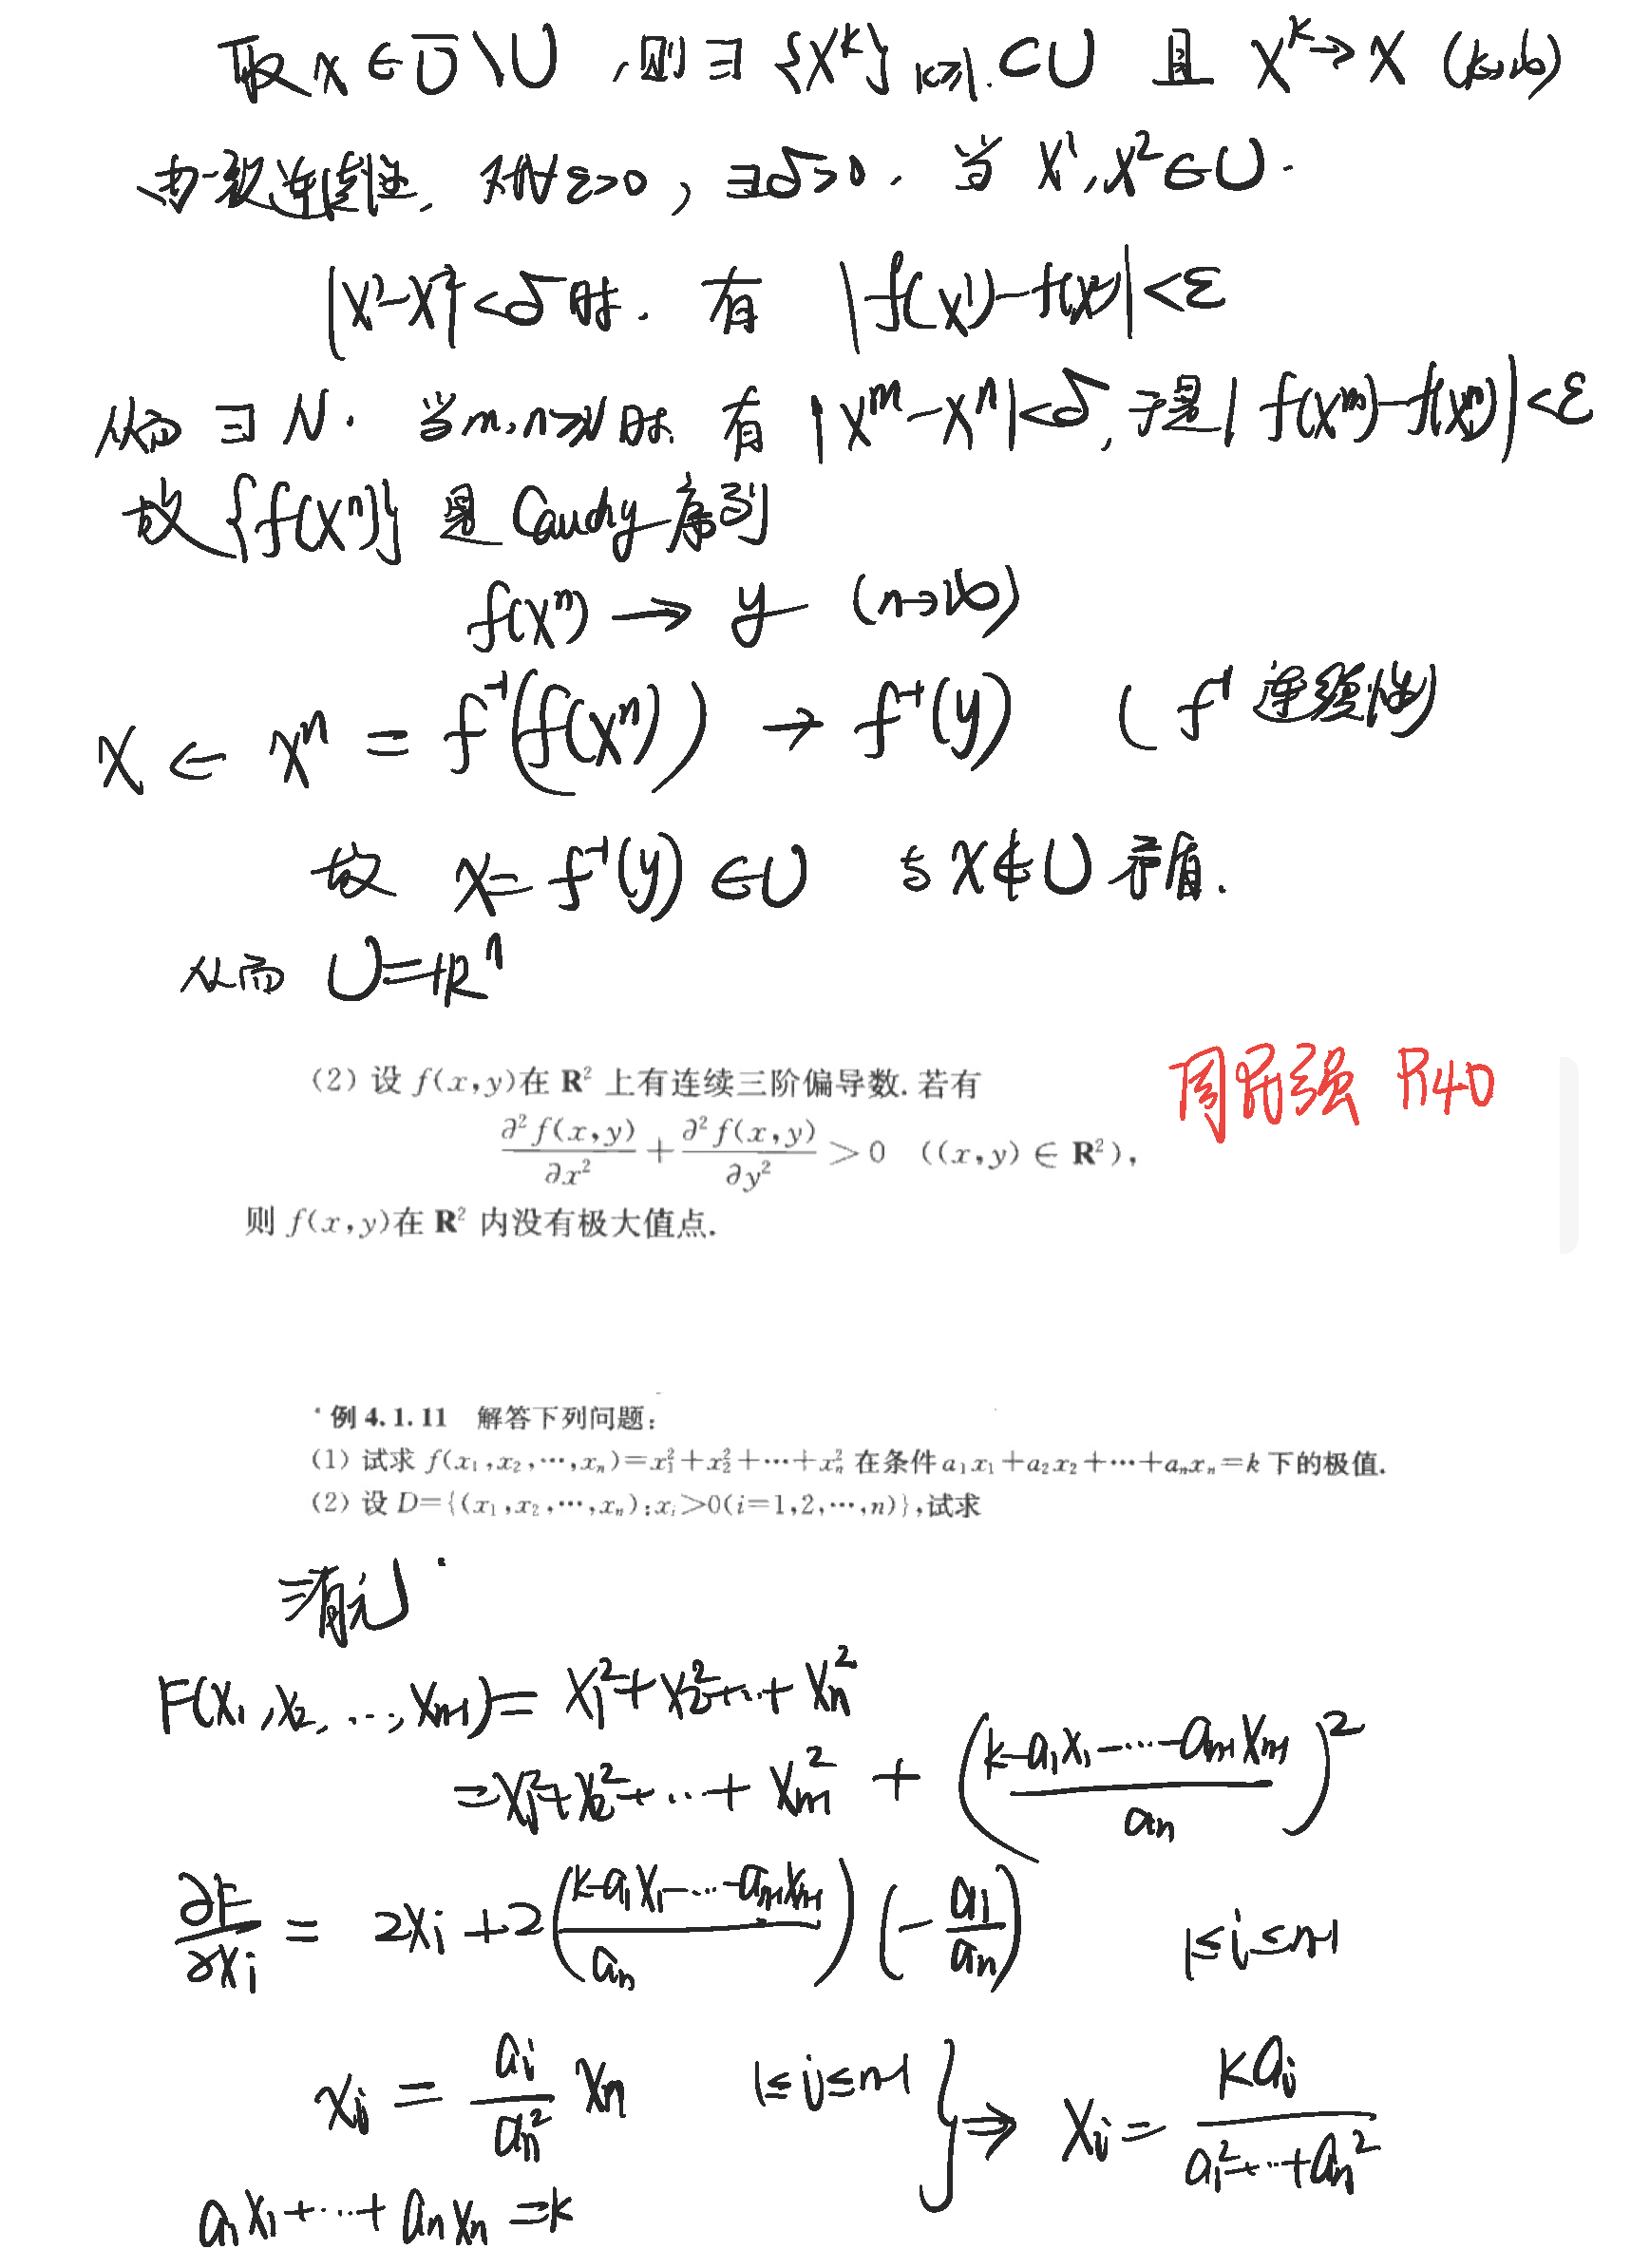 取 x ∈ Ū \ U ，则 ∃ {x^k}_{k≥1} ⊂ U 且 x^k → x (k→∞)
由一致连续性，对∀ε>0，∃δ>0．当 x^1, x^2 ∈ U．
|x^1 - x^2| < δ 时．有 |f(x^1) - f(x^2)| < ε
从而 ∃ N．当 m, n ≥ N 时 有 |x^m - x^n| < δ，于是 |f(x^m) - f(x^n)| < ε
故 {f(x^n)} 是 Cauchy 序列
f(x^n) → y (n→∞)
x ← x^n = f^{-1}(f(x^n)) → f^{-1}(y) (f^{-1} 连续性)
故 x = f^{-1}(y) ∈ U 与 x ∉ U 矛盾．
从而 U = ℝ^n
(2) 设 f(x,y)在 R² 上有连续三阶偏导数. 若有
周民强 P40
∂²f(x,y)/∂x² + ∂²f(x,y)/∂y² > 0 ((x,y) ∈ R²),
则 f(x,y)在 R² 内没有极大值点.
例 4.1.11 解答下列问题：
(1) 试求 f(x₁,x₂,⋯,xₙ)=x₁²+x₂²+⋯+xₙ² 在条件 a₁x₁+a₂x₂+⋯+aₙxₙ=k 下的极值.
(2) 设 D={(x₁,x₂,⋯,xₙ):xᵢ>0(i=1,2,⋯,n)},试求
消元
F(x₁, x₂, ⋯, x_{n-1}) = x₁² + x₂² + ⋯ + xₙ²
= x₁² + x₂² + ⋯ + x_{n-1}² + ((k - a₁x₁ - ⋯ - a_{n-1}x_{n-1})/aₙ)²
∂F/∂xᵢ = 2xᵢ + 2((k - a₁x₁ - ⋯ - a_{n-1}x_{n-1})/aₙ)(-a₁/aₙ) 1≤i≤n-1
xᵢ = (aᵢ/aₙ²) xₙ 1≤i≤n-1 } ⇒ xᵢ = kaᵢ/(a₁²+⋯+aₙ²)
a₁x₁ + ⋯ + aₙxₙ = k